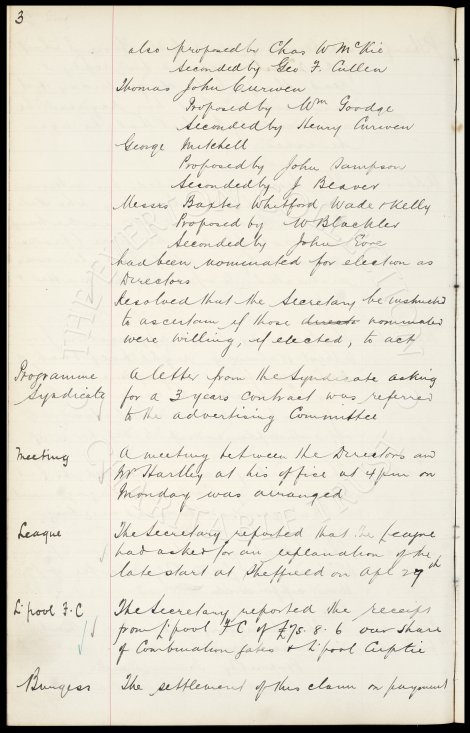 3
also proposed by Chas W McKie
Seconded by Geo F. Cullen
Thomas John Curwen
Proposed by Wm Goodge
Seconded by Henry Curwen
George Mitchell
Proposed by John Sampson
Seconded by J Beaver
Messrs Baxter Whitford Wade & Kelly
Proposed by W Blackler
Seconded by John
had been nominated for election as
Directors
Resolved that the Secretary be instructed
to ascertain if those nominated
were willing, if elected, to act
Programme Syndicate
A letter from the Syndicate asking
for a 3 years contract was referred
to the advertising Committee
Meeting
A meeting between the Directors and
Mr Hartley at his office at 4 pm on
Monday was arranged
League
The Secretary reported that the League
had asked for an explanation of the
late start at Sheffield on Apl 27th
L'pool F.C
The Secretary reported the receipt
from L'pool F C of £75.8.6 our share
of Combination gates & L'pool Cuptie
Burgess
The settlement of this claim on payment